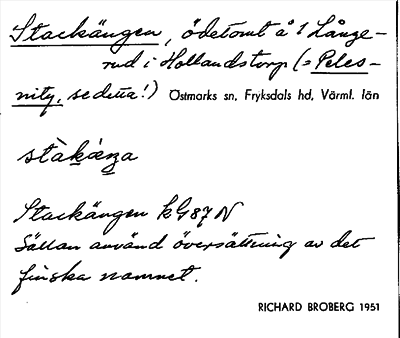 Stackängen, ödetomt å 1 Långe-
rud i Hollandstorp (= Peles-
nity, se detta!) Östmarks sn, Fryksdals hd, Värml. län
stàkæ̀ŋa
Stackängen kG87N
Sällan använd översättning av det
finska namnet.
RICHARD BROBERG 1951